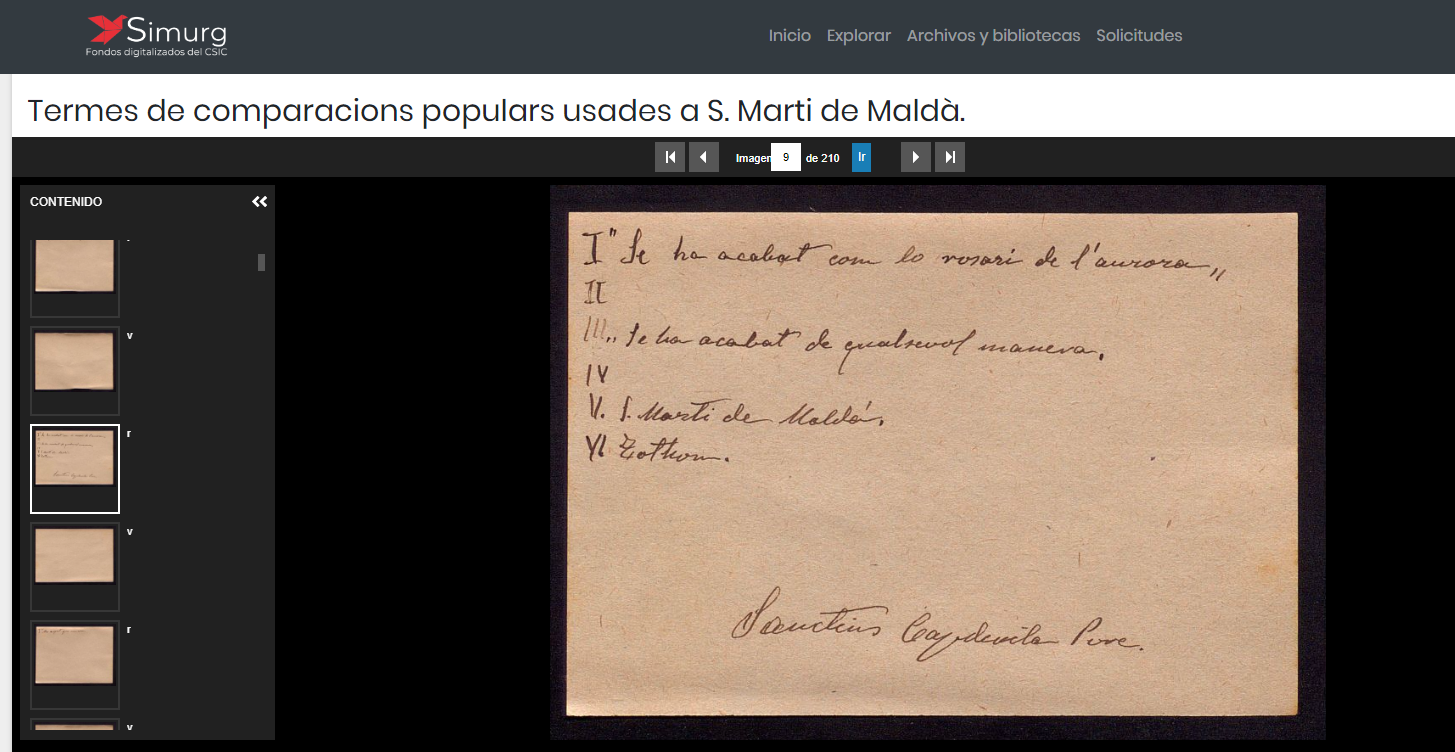 Simurg
Fondos digitalizados del CSIC
Inicio Explorar Archivos y bibliotecas Solicitudes
Termes de comparacions populars usades a S. Marti de Maldà.
Imagen 9 de 210 Ir
CONTENIDO
v
r
v
r
v
I " Se ha acabat com lo rosari de l'aurora „
II
III „ Se ha acabat de qualsevol manera.
IV
V. S. Marti de Maldá.
VI Tothom.
Sanctius Capdevila Pvre.